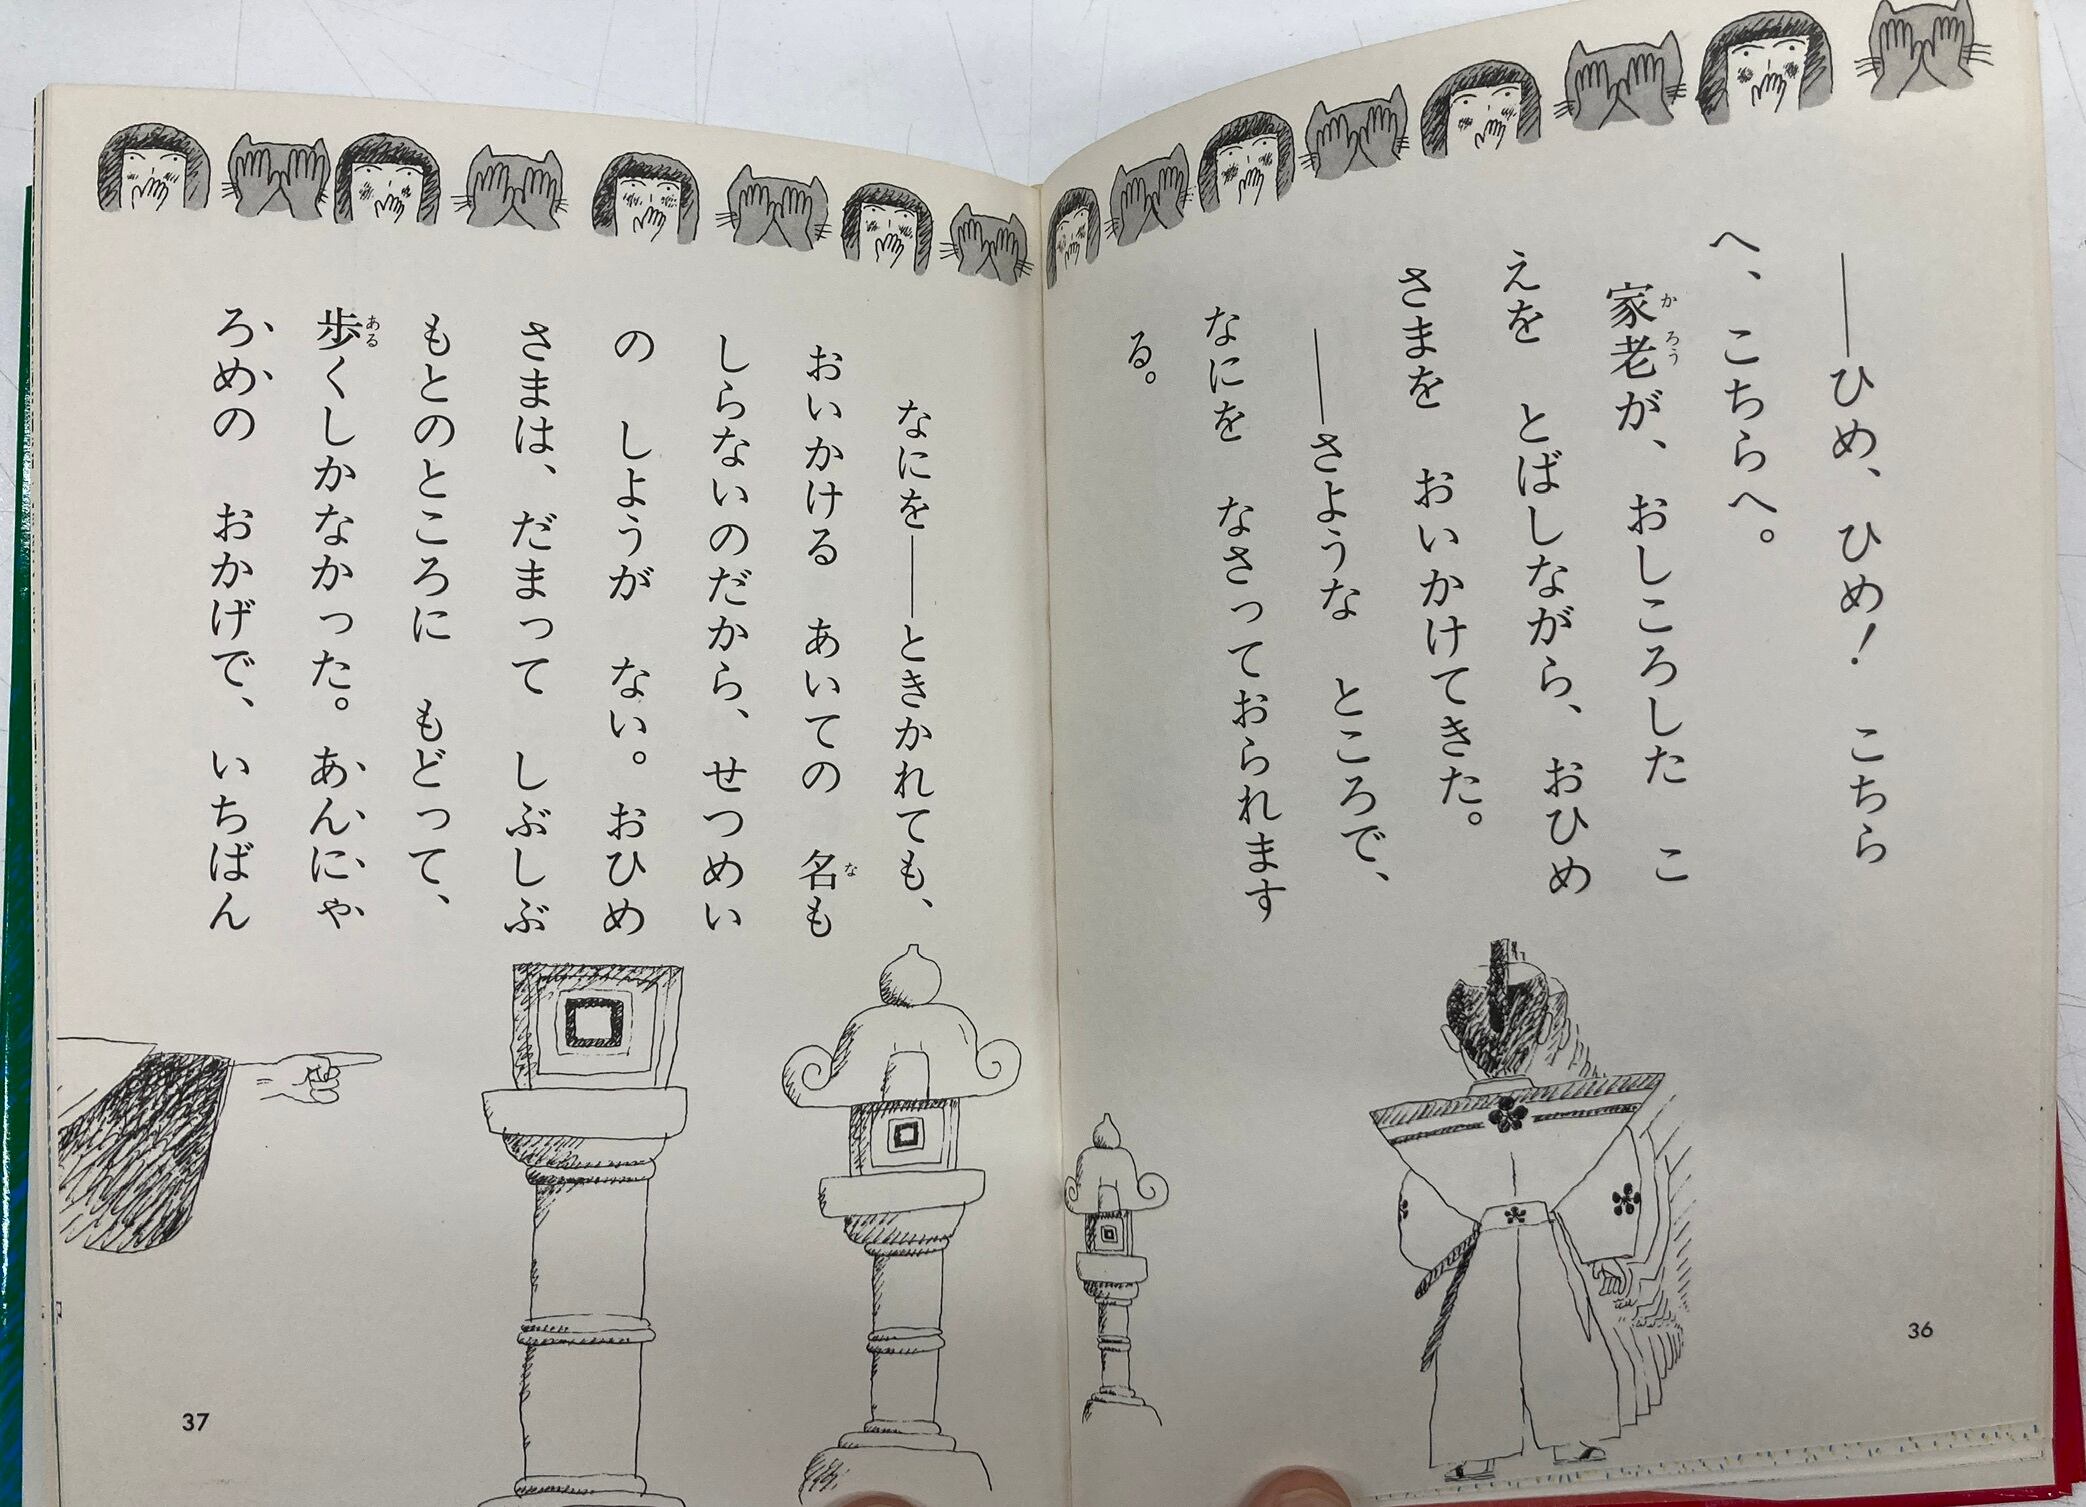 ――ひめ、ひめ！　こちら
へ、こちらへ。
家老が、おしころした　こ
えを　とばしながら、おひめ
さまを　おいかけてきた。
――さような　ところで、
なにを　なさっておられます
る。
36
なにを――ときかれても、
おいかける　あいての　名も
しらないのだから、せつめい
の　しようが　ない。おひめ
さまは、だまって　しぶしぶ
もとのところに　もどって、
歩くしかなかった。あんにゃ
ろめの　おかげで、いちばん
37